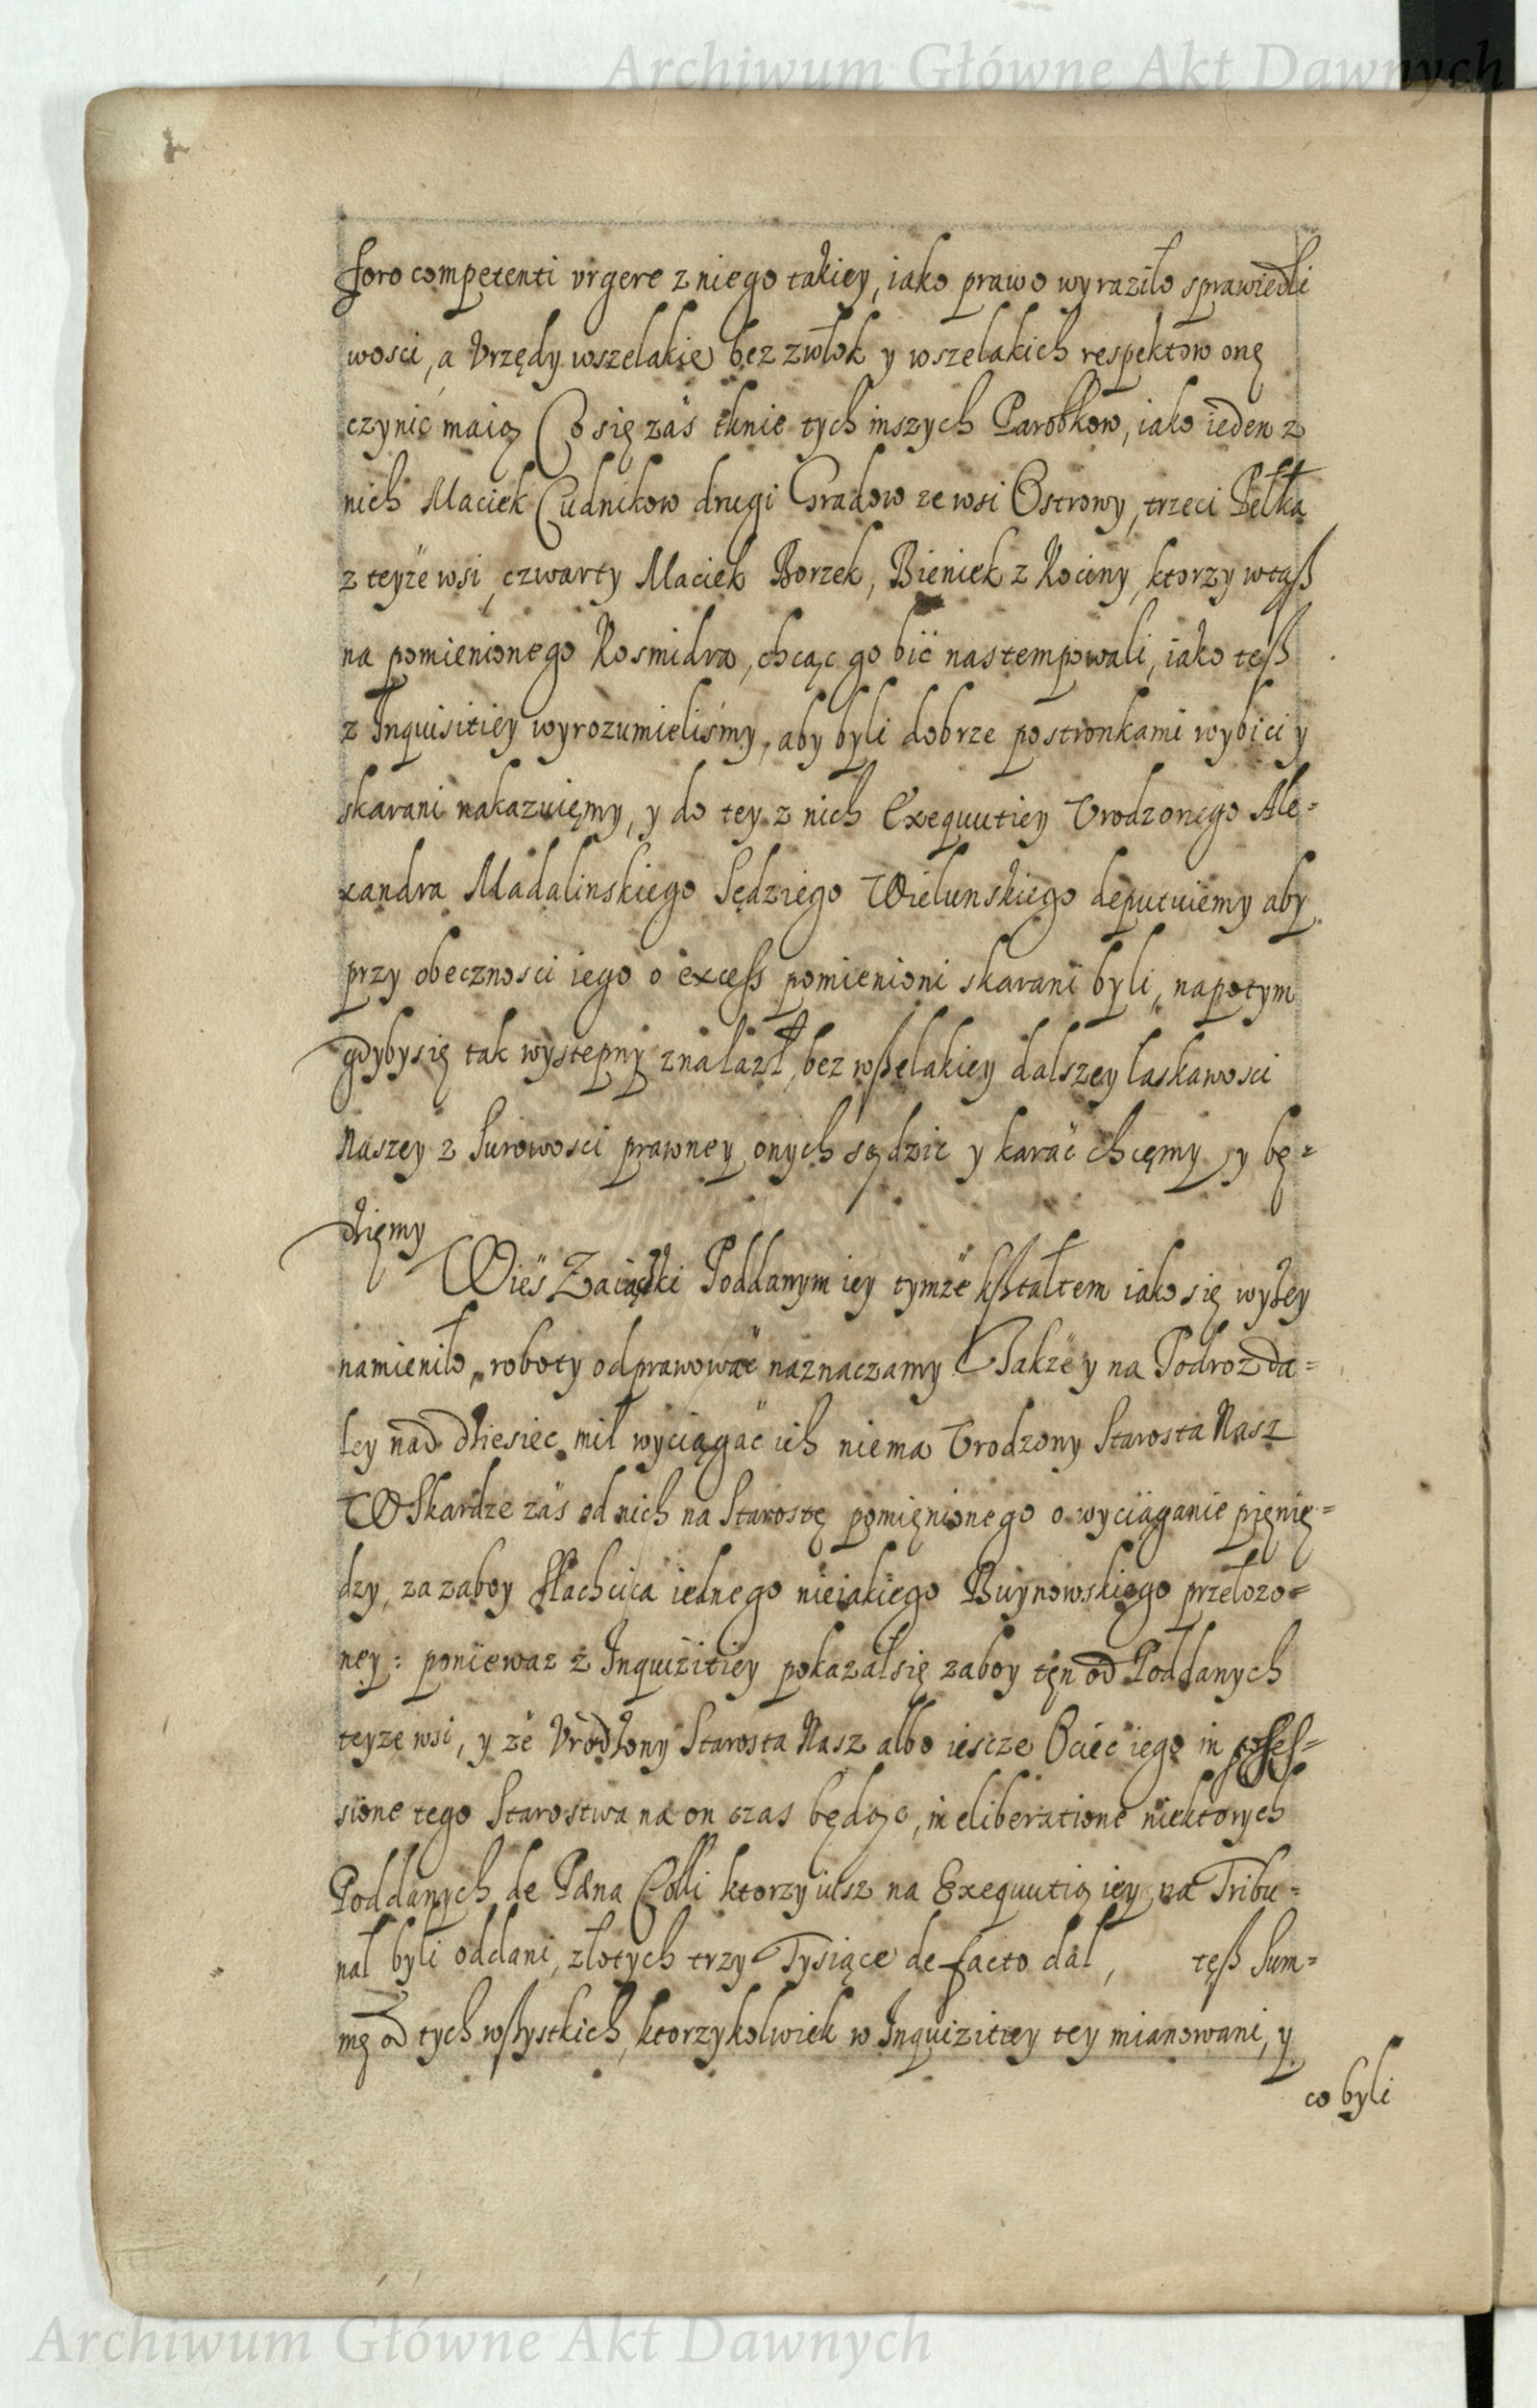 Archiwum Główne Akt Dawnych
foro competenti vrgere z niego takiey, iako prawo wyraziło sprawiedli
wosci, a Vrzędy wszelakie bez zwłok y wszelakich respektow onę
czynić maią Co się zaś tknie tych inszych Parobkow, iako ieden z
nich Maciek Cudnikow drugi Gradow ze wsi Ostrowy, trzeci Pełka
z teyże wsi, czwarty Maciek Borzek, Bieniek z Kociny, ktorzy wtąß
na pomienionego Kosmidra, chcąc go bić nastempowali, iako teß
z Inquisitiey wyrozumieliśmy, aby byli dobrze postronkami wybici y
skarani nakazuięmy, y do tey z nich Exequutiey Vrodzonego Ale=
xandra Madalinskiego Sędziego Wielunskiego deputuiemy aby
przy obecznosci iego o excess pomienioni skarani byli, napotym
gdyby się tak wystepny znalazł, bez wßelakiey dalszey laskawosci
Naszey z Surowosci prawney onych sądzić y karać chcęmy y bę=
dzięmy
Wieś Zaiączki Poddanym iey tymże kßtałtem iako się wyżey
namieniło, roboty odprawować naznaczamy Także y na Podroż da=
ley nad dziesięc mil wyciągać ich niema Vrodzony Starosta Nasz
W Skardze zaś od nich na Starostę pomięnionego o wyciąganie pięnię=
dzy, za zaboy ßlachcica iednego nieiakiego Buynowskiego przełożo=
ney: ponieważ z Inquizitiey pokazał się zaboy tęn od Poddanych
teyże wsi, y że Vrodzony Starosta Nasz albo iescze Ociec iego in posses=
sione tego Starostwa na on czas będąc, in eliberatione niektorych
Poddanych de Pæna Colli ktorzy iusz na Exequutią iey na Tribu=
nał byli oddani, złotych trzy Tysiące de facto dał, tęß Sum=
mę od tych wßystkich, ktorzykolwiek w Inquizitiey tey mianowani, y
co byli
Archiwum Główne Akt Dawnych